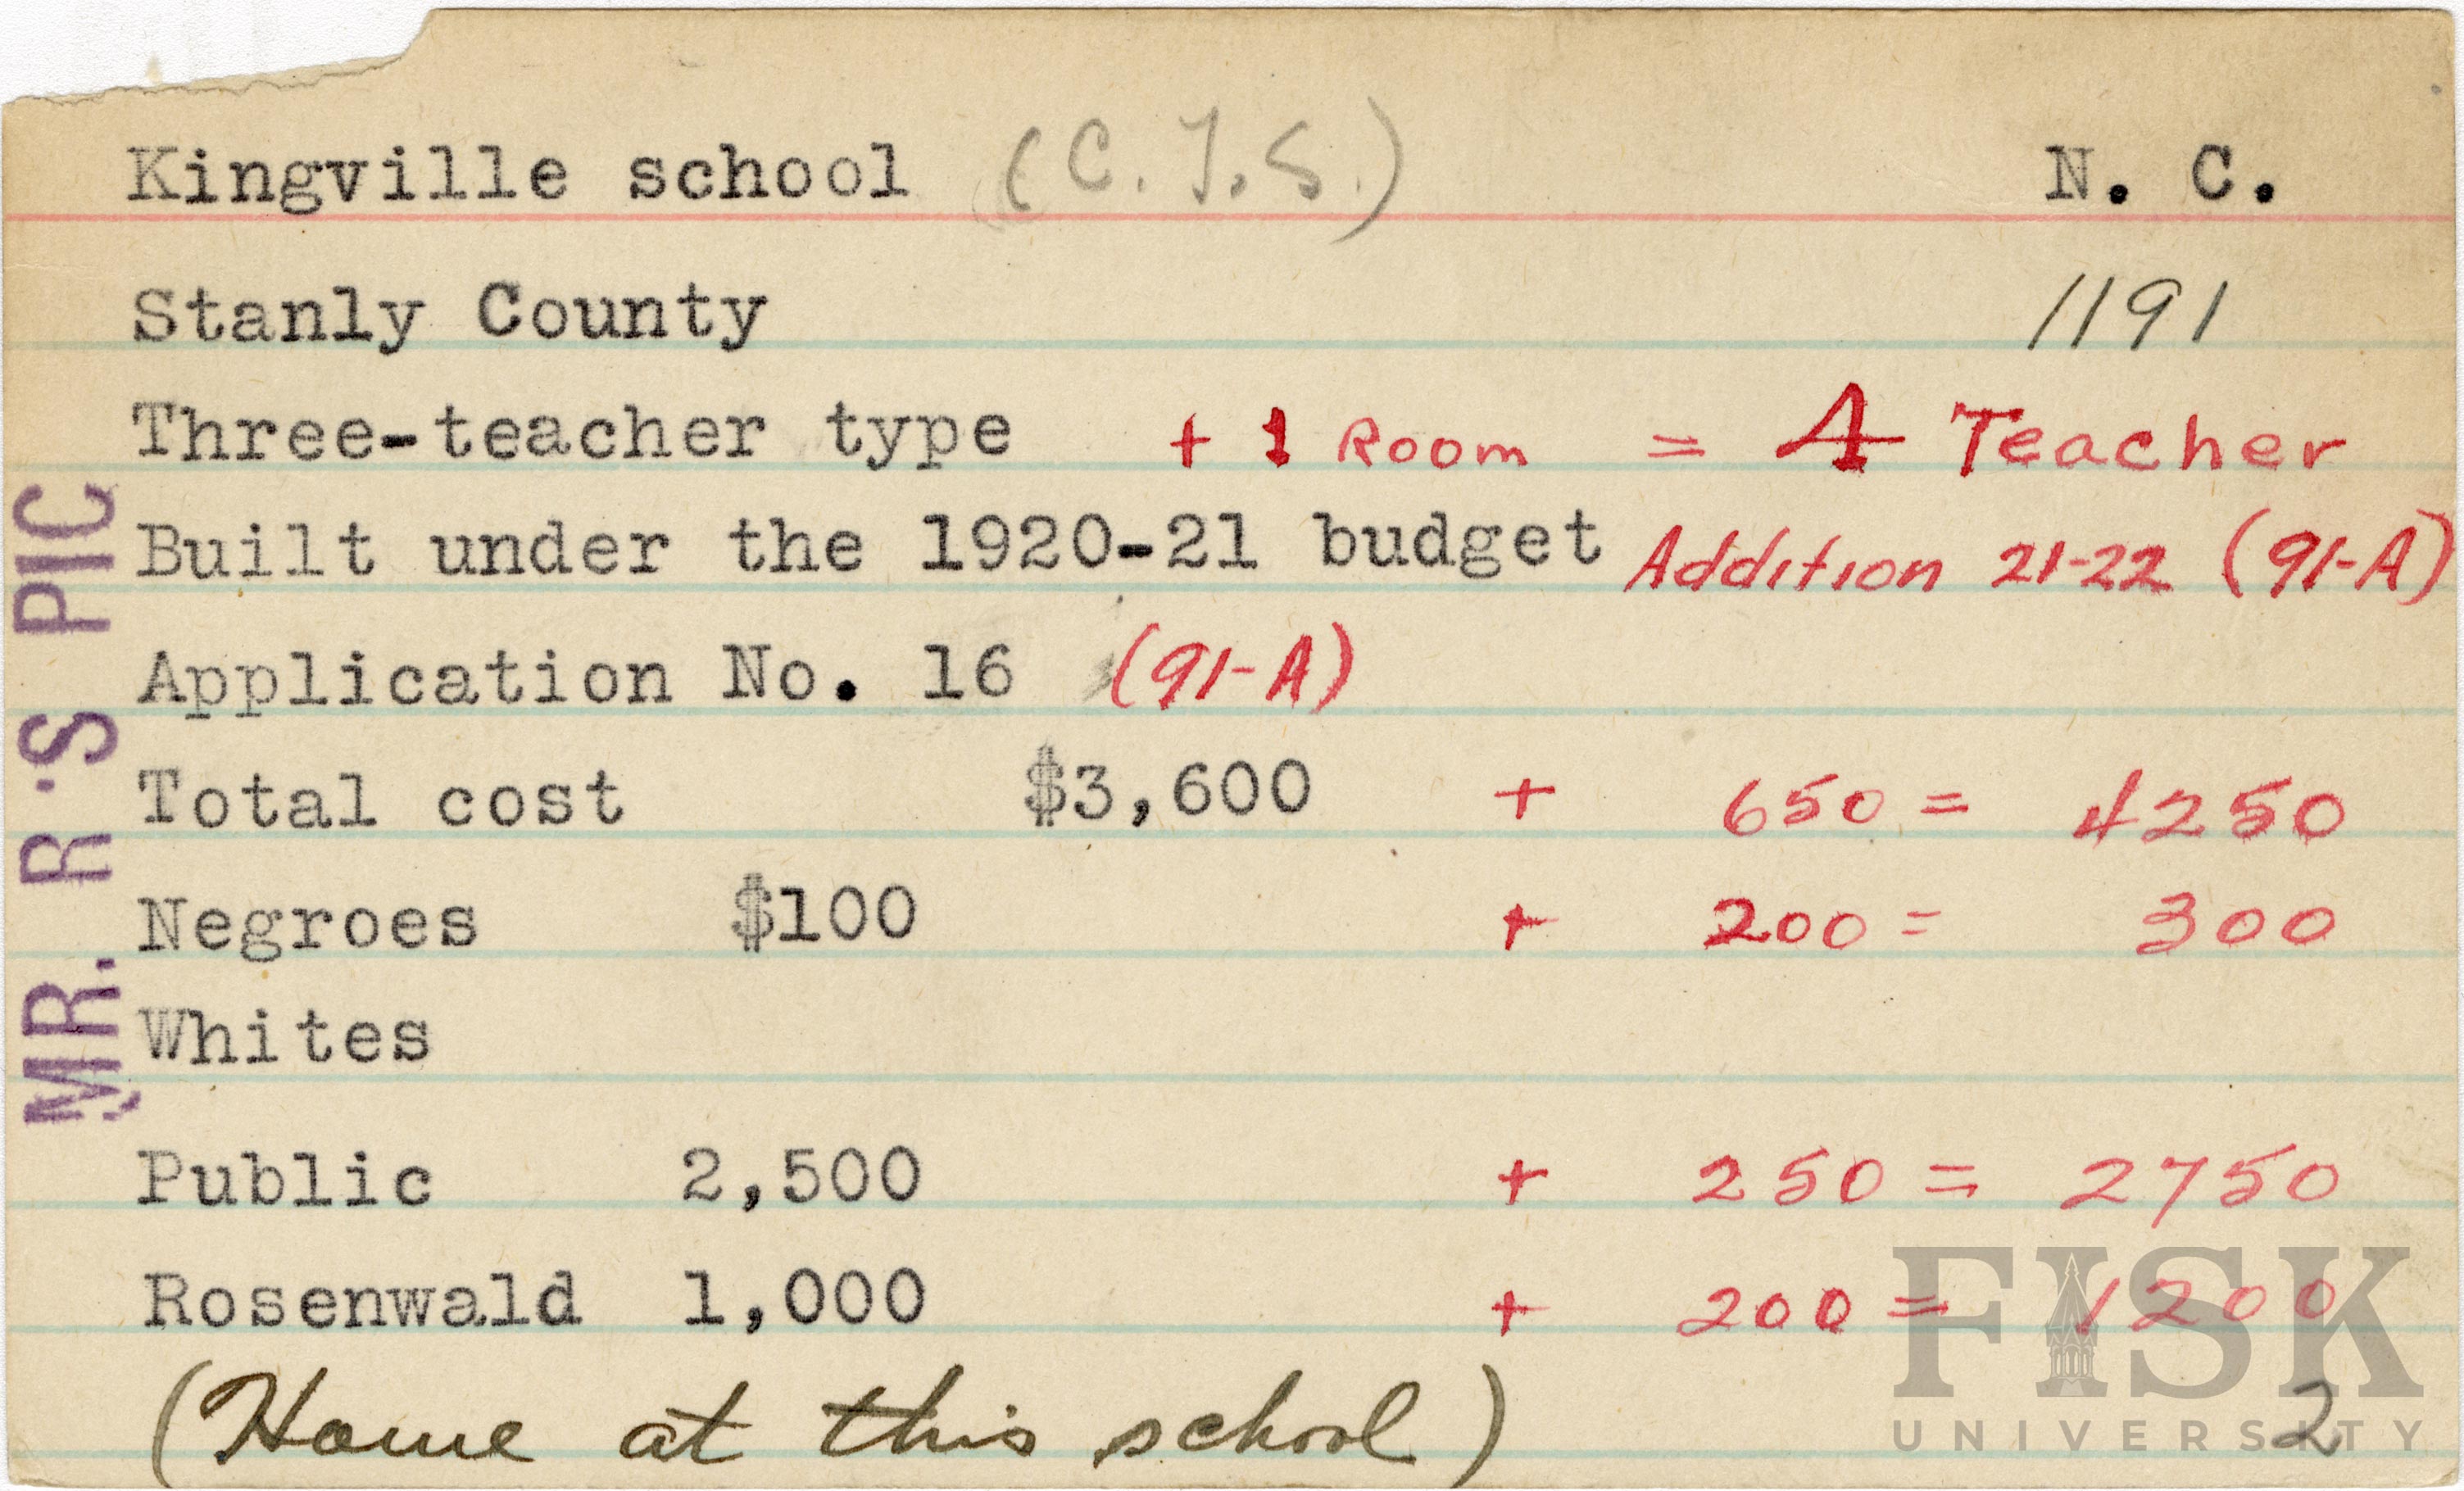 Kingville school (C.T.S.) N. C.
Stanly County 1191
Three-teacher type + 1 Room = 4 Teacher
Built under the 1920-21 budget Addition 21-22 (91-A)
Application No. 16 (91-A)
Total cost $3,600 + 650 = 4250
Negroes $100 + 200 = 300
Whites
Public 2,500 + 250 = 2750
Rosenwald 1,000 + 200 = 1200
(Home at this school) 2
MR. R·S PIC
FISK
UNIVERSITY